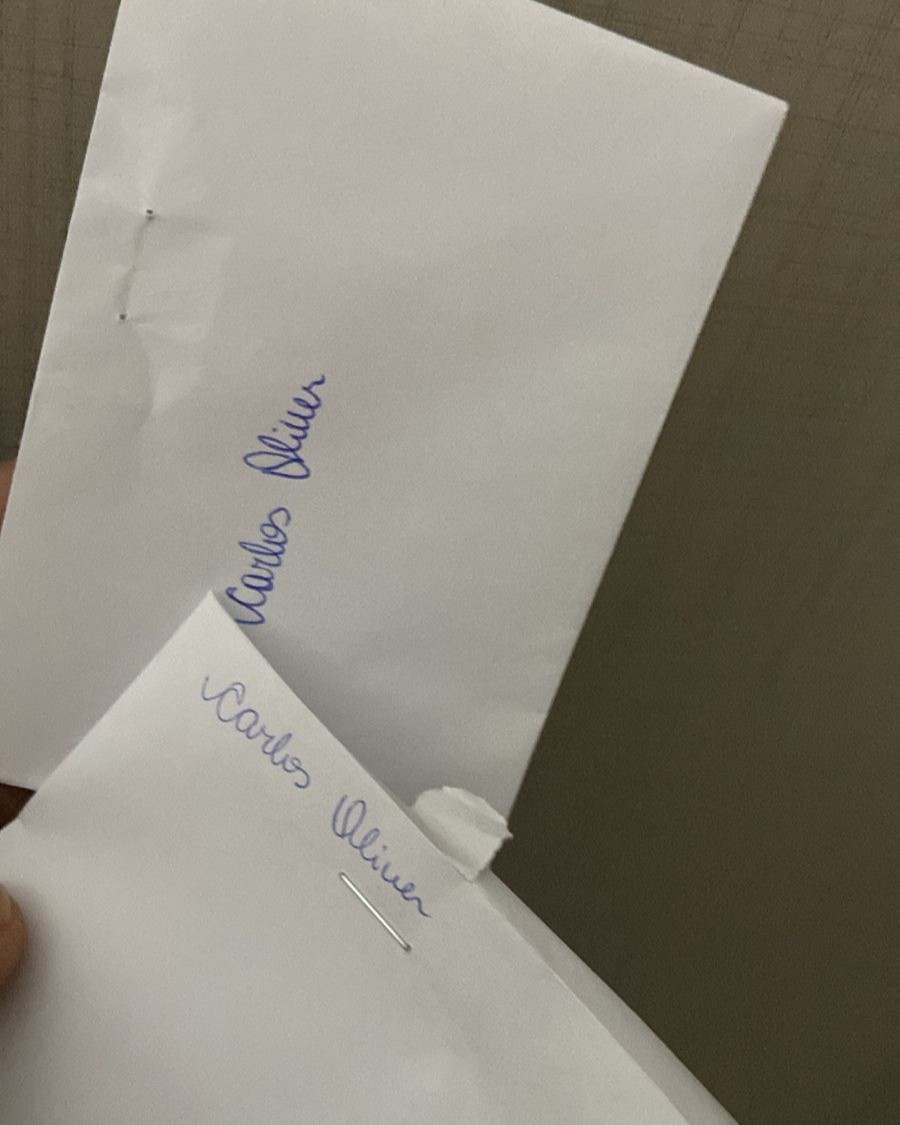 Carlos Oliver
Carlos Oliver